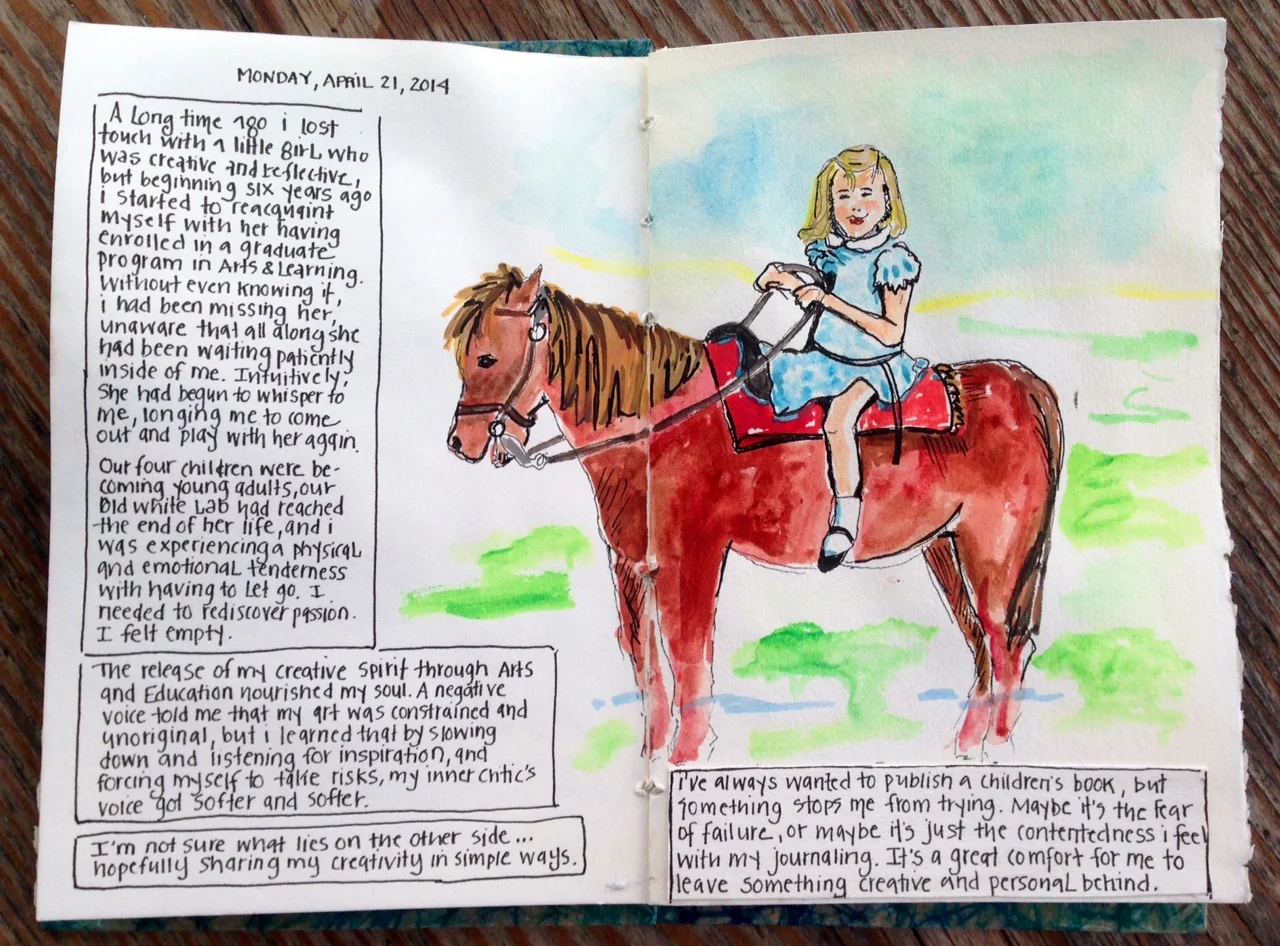 MONDAY, APRIL 21, 2014
A Long time ago i lost
touch with a little girl who
was creative and reflective,
but beginning six years ago
i started to reacquaint
myself with her having
enrolled in a graduate
program in Arts & Learning.
Without even knowing it,
i had been missing her,
unaware that all along she
had been waiting patiently
inside of me. Intuitively,
she had begun to whisper to
me, longing me to come
out and play with her again.
Our four children were be-
coming young adults, our
old white Lab had reached
the end of her life, and i
was experiencing a physical
and emotional tenderness
with having to let go. I
needed to rediscover passion.
I felt empty.
The release of my creative spirit through Arts
and Education nourished my soul. A negative
voice told me that my art was constrained and
unoriginal, but i learned that by slowing
down and listening for inspiration, and
forcing myself to take risks, my inner critic's
voice got softer and softer.
I'm not sure what lies on the other side...
hopefully sharing my creativity in simple ways.
I've always wanted to publish a children's book, but
something stops me from trying. Maybe it's the fear
of failure, or maybe it's just the contentedness i feel
with my journaling. It's a great comfort for me to
leave something creative and personal behind.